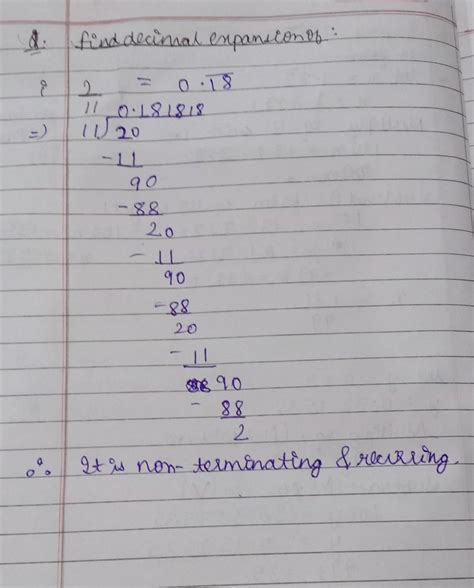 Q. find decimal expansion of :
i 2/11 = 0.1̅8̅
0.181818
=> 11)20
-11
90
-88
20
- 11
90
-88
20
- 11
90
- 88
2
∴ It is non-terminating & recurring.